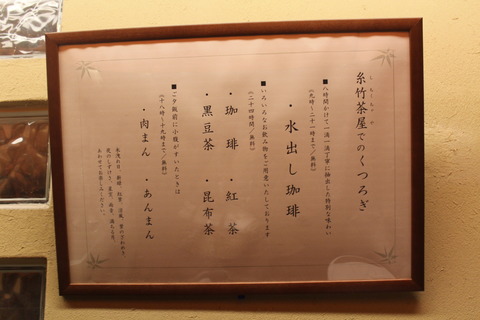 糸竹茶屋でのくつろぎ
■八時間かけて一滴一滴丁寧に抽出した特別な味わい
（九時～二十一時まで／無料）
・水出し珈琲
■いろいろなお飲み物をご用意いたしております
（二十四時間／無料）
・珈琲 ・紅茶
・黒豆茶 ・昆布茶
■ご夕飯前に小腹がすいたときは
（十八時～十九時まで／無料）
・肉まん ・あんまん